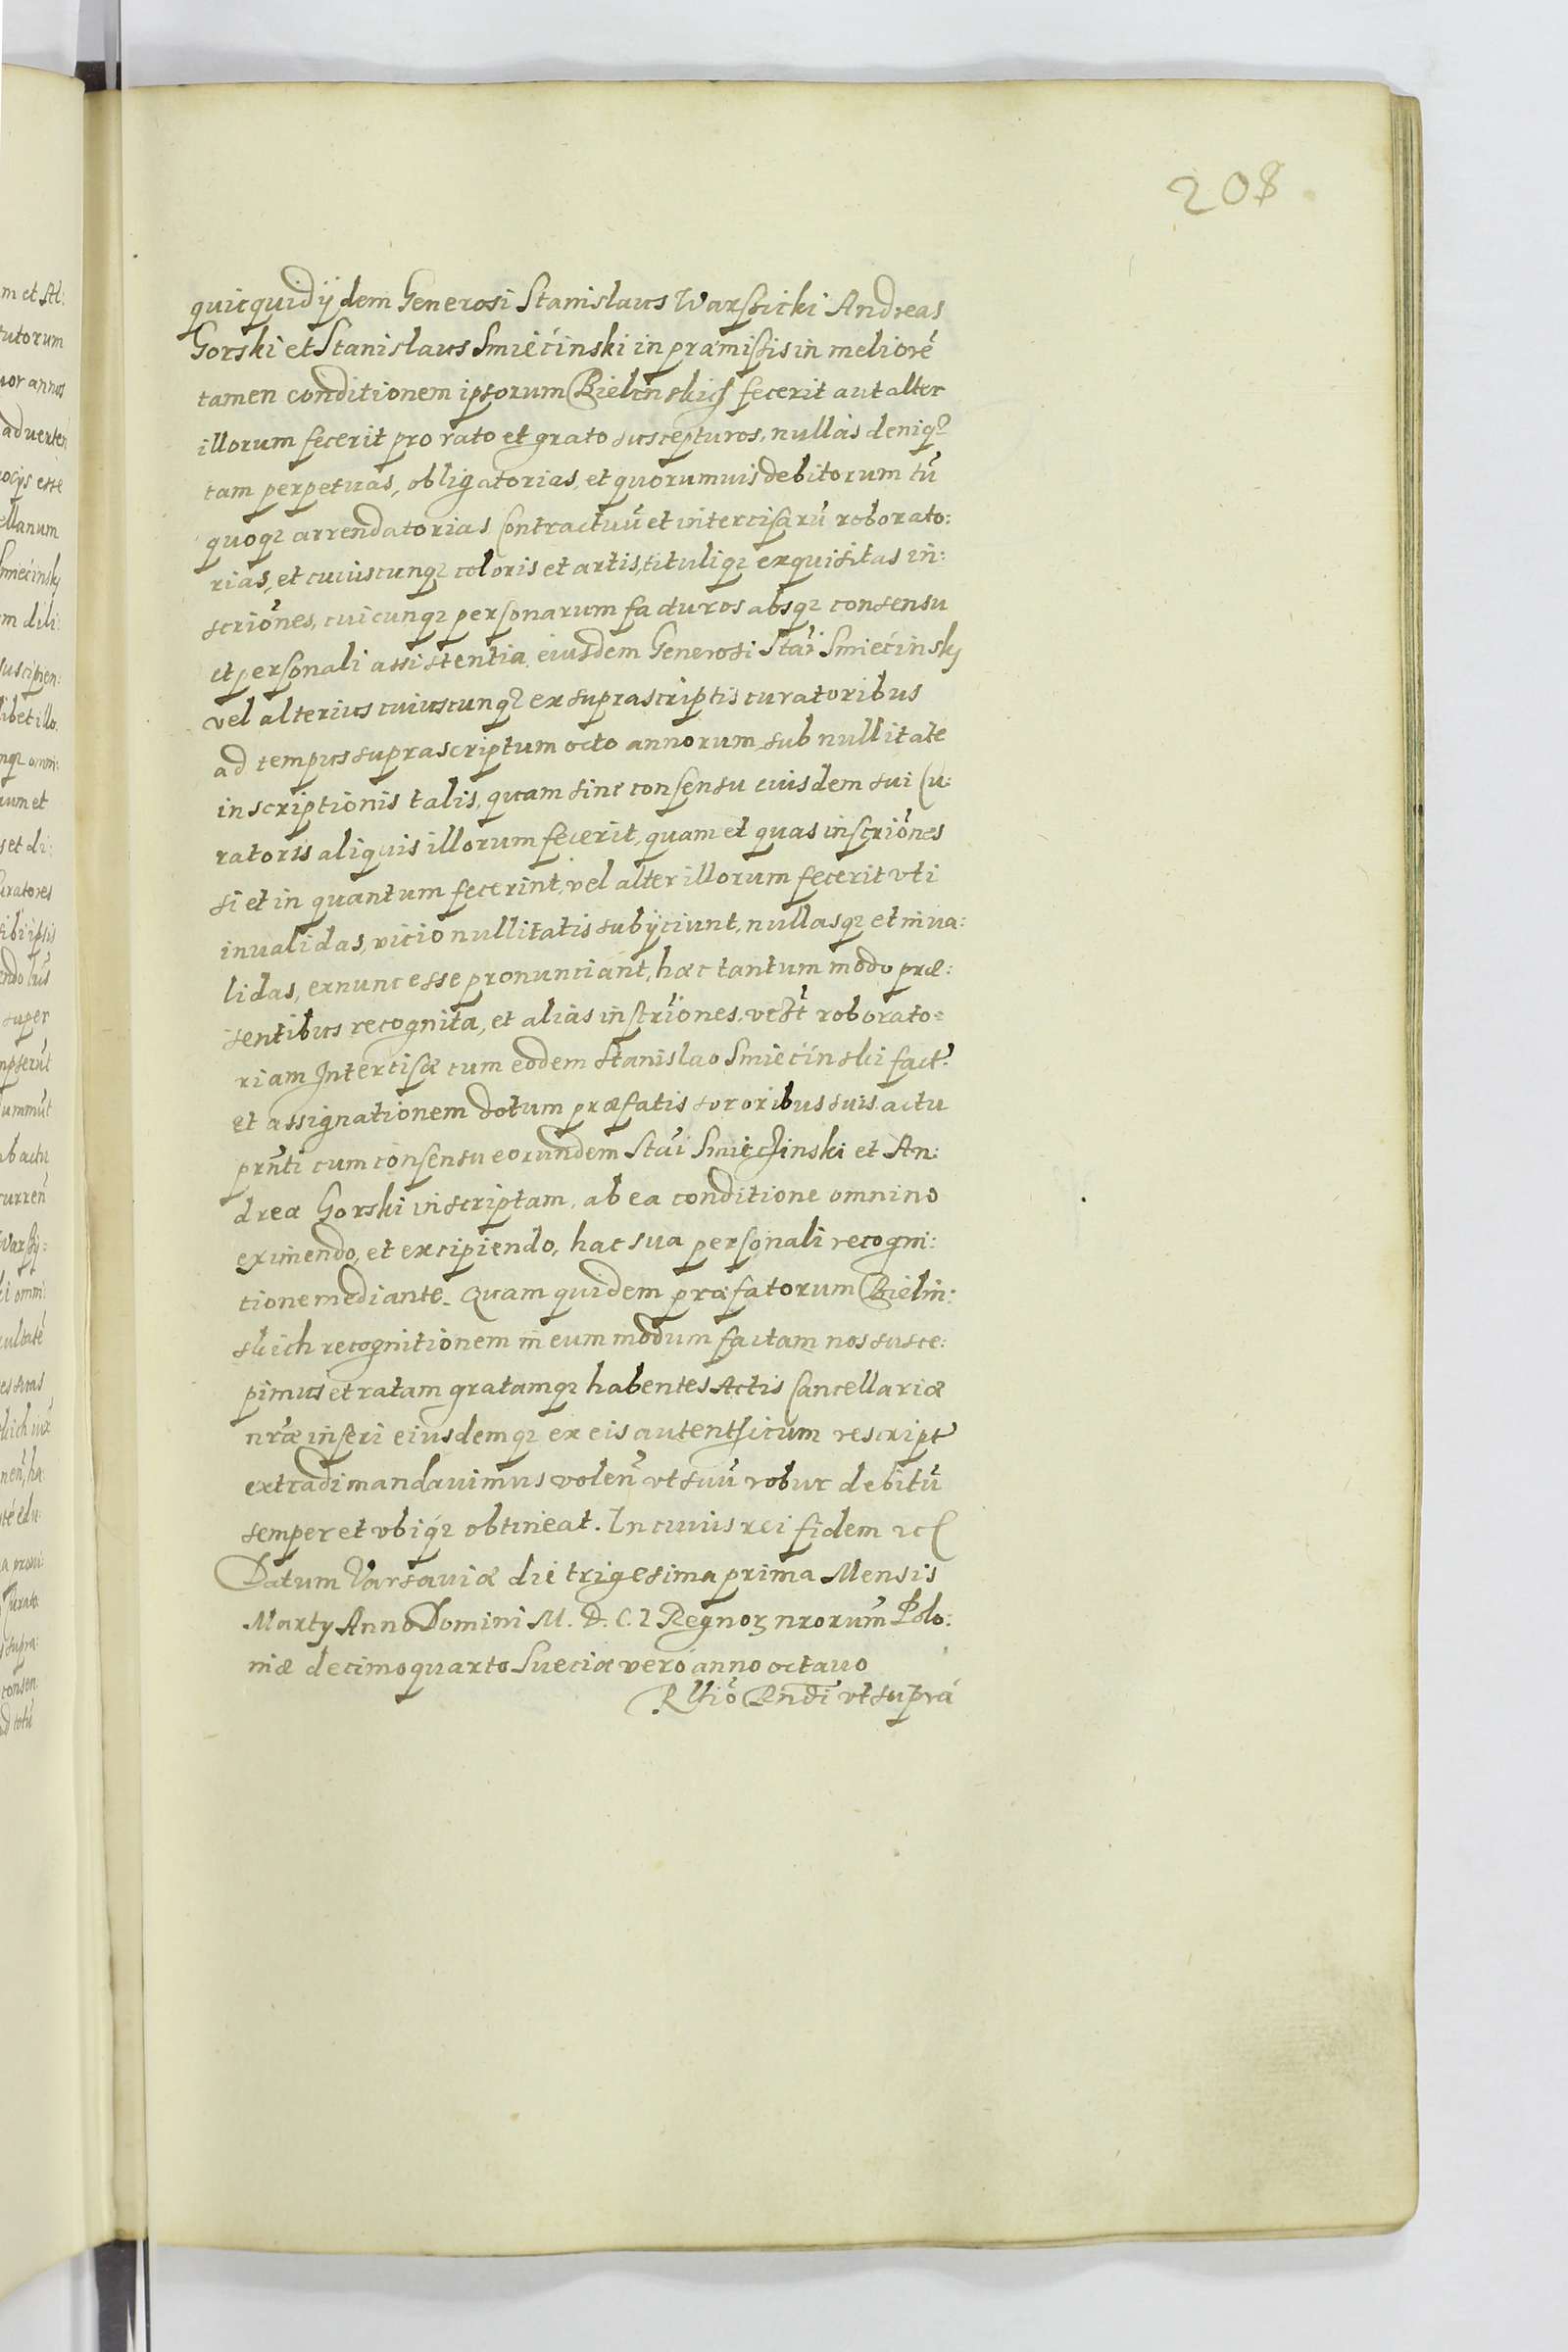 208
quicquid ijdem Generosi Stanislaus Warssicki Andreas
Gorski et Stanislaus Smiecinski in præmissis in meliorē
tamen conditionem ipsorum Bielinskich fecerit aut alter
illorum fecerit pro rato et grato suscepturos, nullas deniqꝫ
tam perpetuas, obligatorias, et quorumuis debitorum tū
quoqꝫ arrendatorias Contractuū et intercisarū roborato:
rias, et cuiuscunqꝫ coloris et artis, tituliqꝫ exquisitas in:
scriōnes, cuicunqꝫ personarum facturos absqꝫ consensu
et personali assistentia, eiusdem Generosi Stāi Smiecinsky
vel alterius cuiuscunqꝫ ex suprascriptis curatoribus
ad tempus suprascriptum octo annorum, sub nullitate
inscriptionis talis, quam sine consensu euisdem sui Cu:
ratoris aliquis illorum fecerit, quam et quas inscriōnes
si et in quantum fecerint, vel alter illorum fecerit vti
inualidas, vicio nullitatis subijciunt, nullasqꝫ et inua:
lidas, exnunc esse pronunciant, hac tantum modo præ:
sentibus recognita, et alias inscriōnes, roborato=
riam Intercisæ cum eodem Stanislao Smiecinski fact.
et assignationem dotum præfatis sororibus suis actu
prn̄ti cum consensu eorundem Stāi Smiechinski et An:
dreæ Gorski inscriptam, ab ea conditione omnino
eximendo, et excipiendo, hac sua personali recogni:
tione mediante. Quam quidem præfatorum Bielin:
skich recognitionem in eum modum factam nos susce:
pimus et ratam gratamqꝫ habentes Actis Cancellariæ
nr̄æ inseri eiusdemqꝫ ex eis autenthicum rescript
extradi mandauimus volen̄ vt suū robur debitū
semper et vbiqꝫ obtineat. In cuius rei fidem ꝛc
Datum Varsauiæ die trigesima prima Mensis
Martij Anno Domini M. D. C. 2 Regnoꝝ nrorum̄ Polo:
niæ decimoquarto Sueciæ vero anno octauo
vt supra